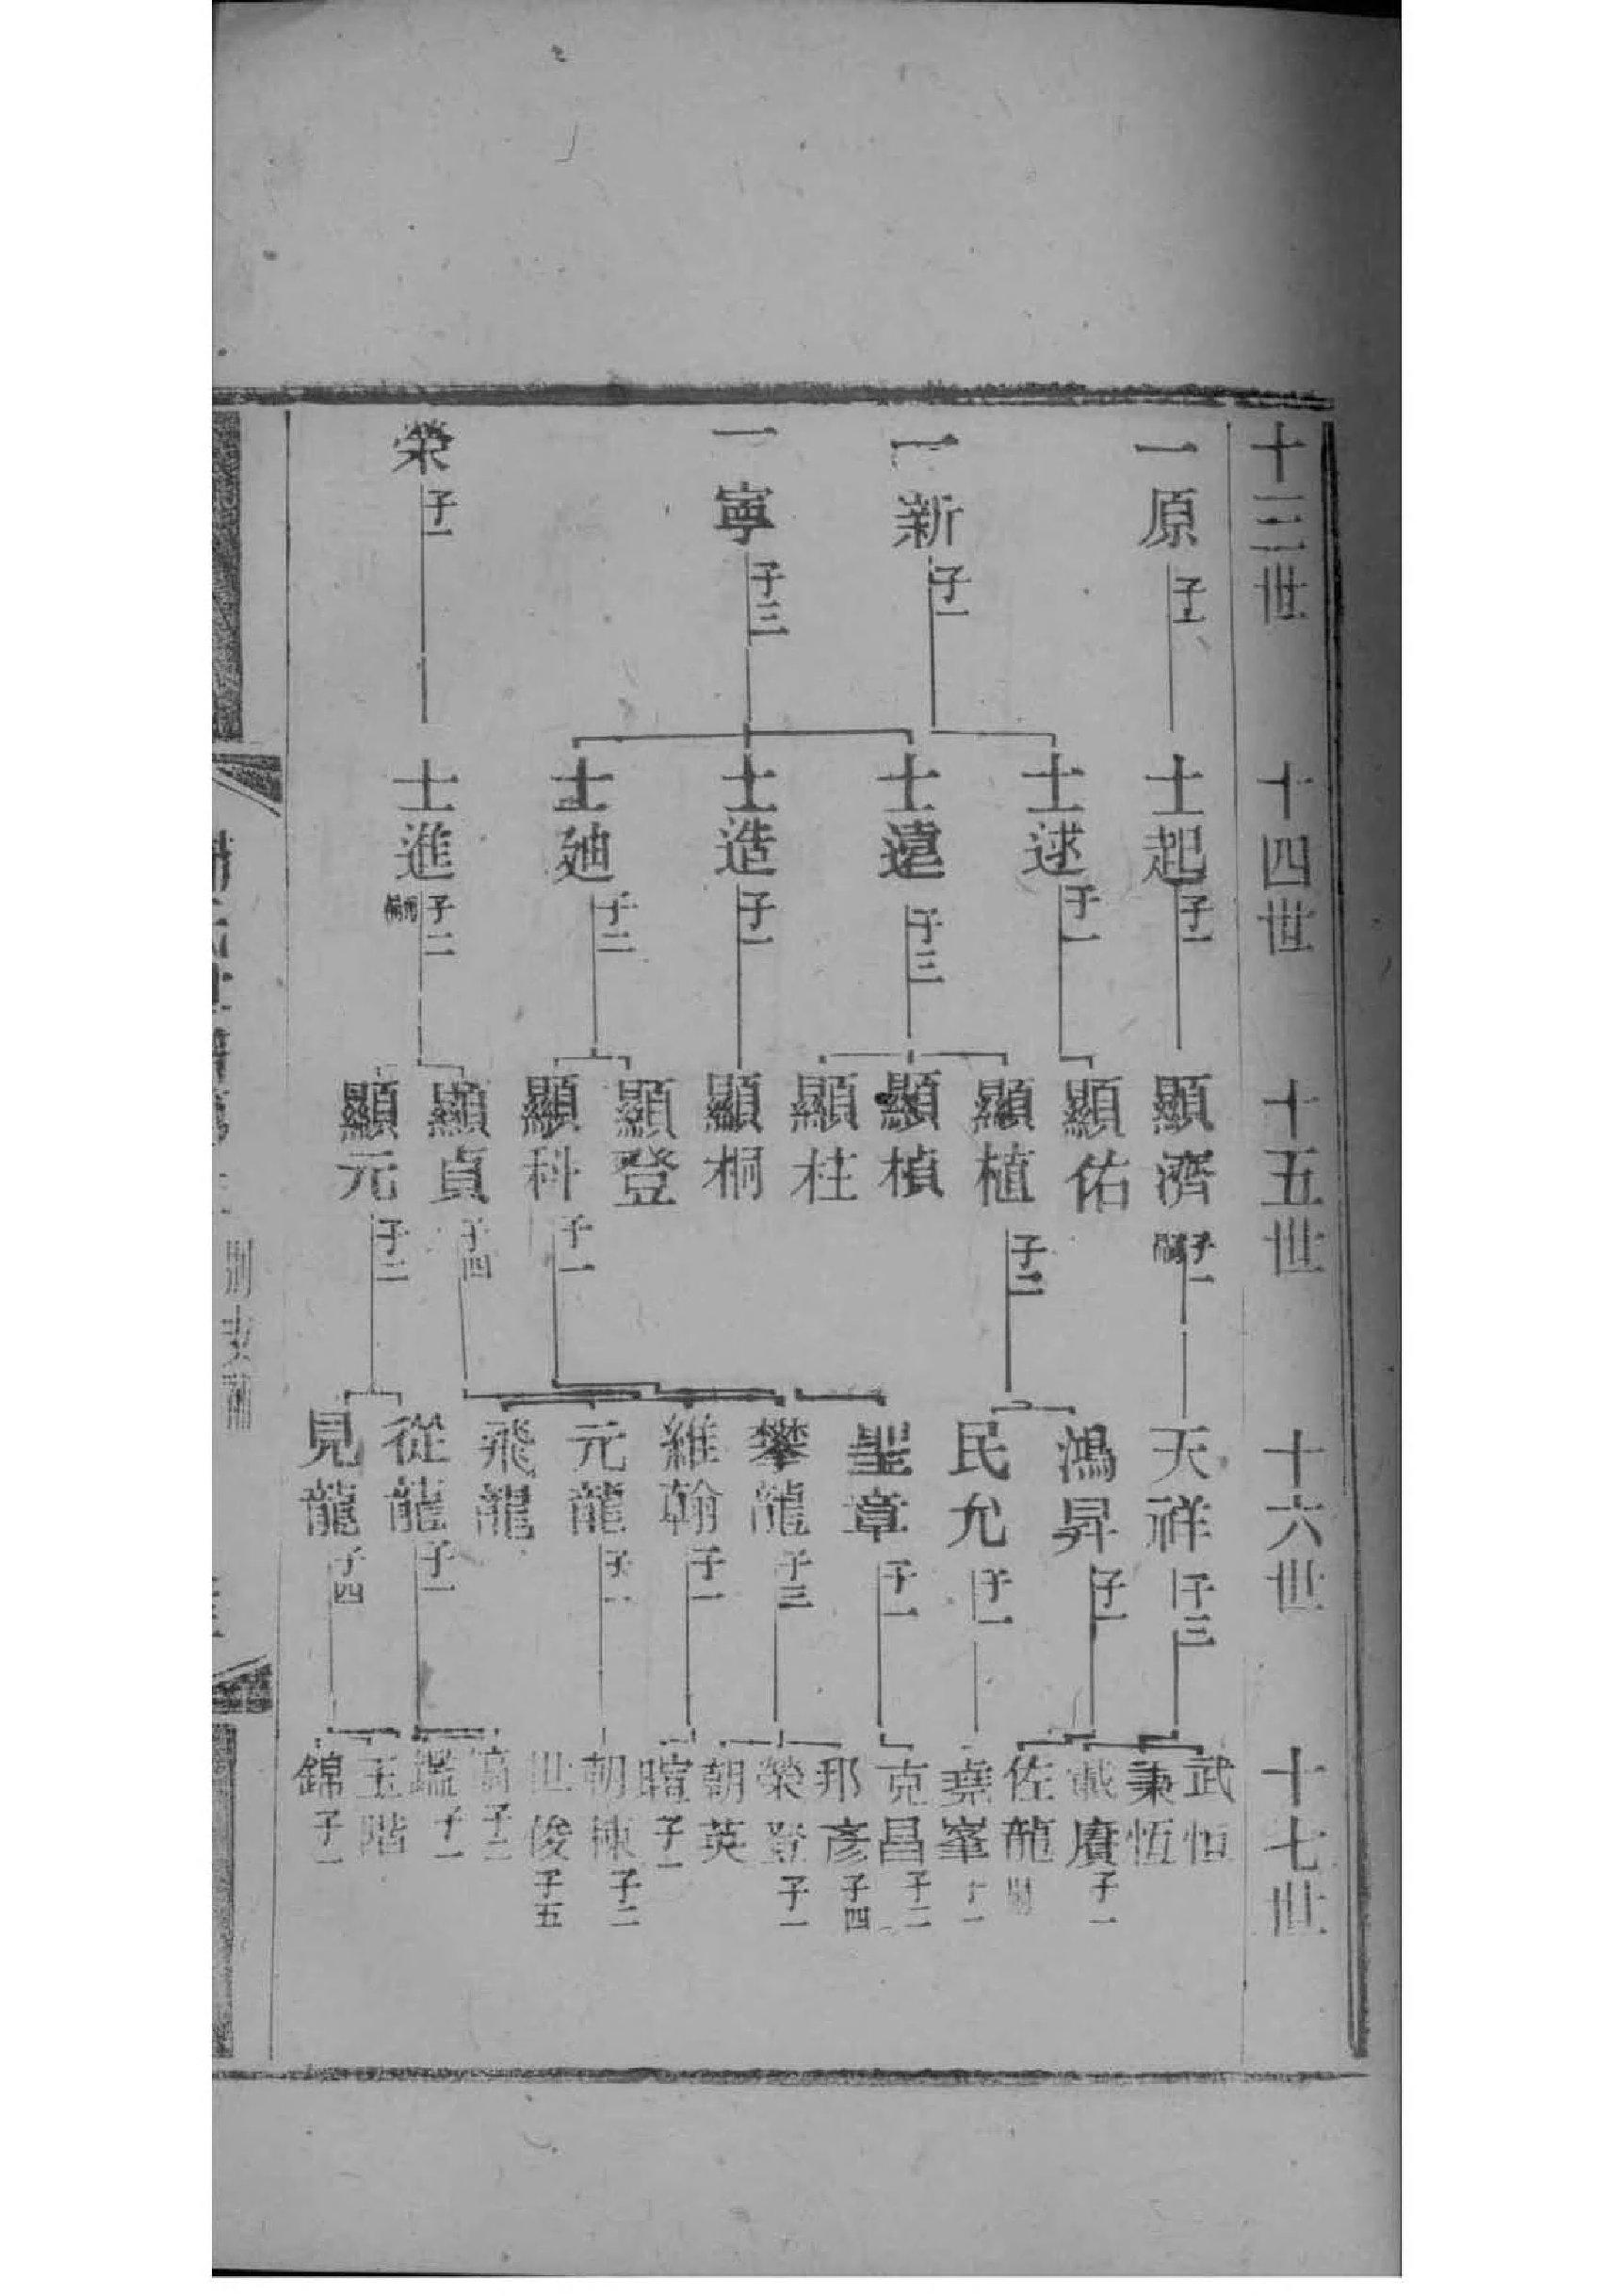 十三世
一原 子一
一新 子一
一寧 子三
榮 子一
十四世
士起 子一
士逑 子一
士遠 子三
士造 子一
士廸 子二
士進 子二
十五世
顯濟 子一
顯佑
顯植 子二
顯楨
顯柱
顯桐
顯登
顯科 子一
顯貞 子四
顯元 子二
十六世
天祥 子三
鴻昇 子一
民允 子一
聖章 子一
攀龍 子三
維翰 子一
元龍
飛龍
從龍 子一
見龍 子四
十七世
武恒
秉恆
賡 子一
佐龍
堯峯
克昌 子二
邦彥 子四
榮登 子一
朝英
暄 子一
朝棟 子二
世俊 子五
子二
鑑 子一
玉階
錦 子一